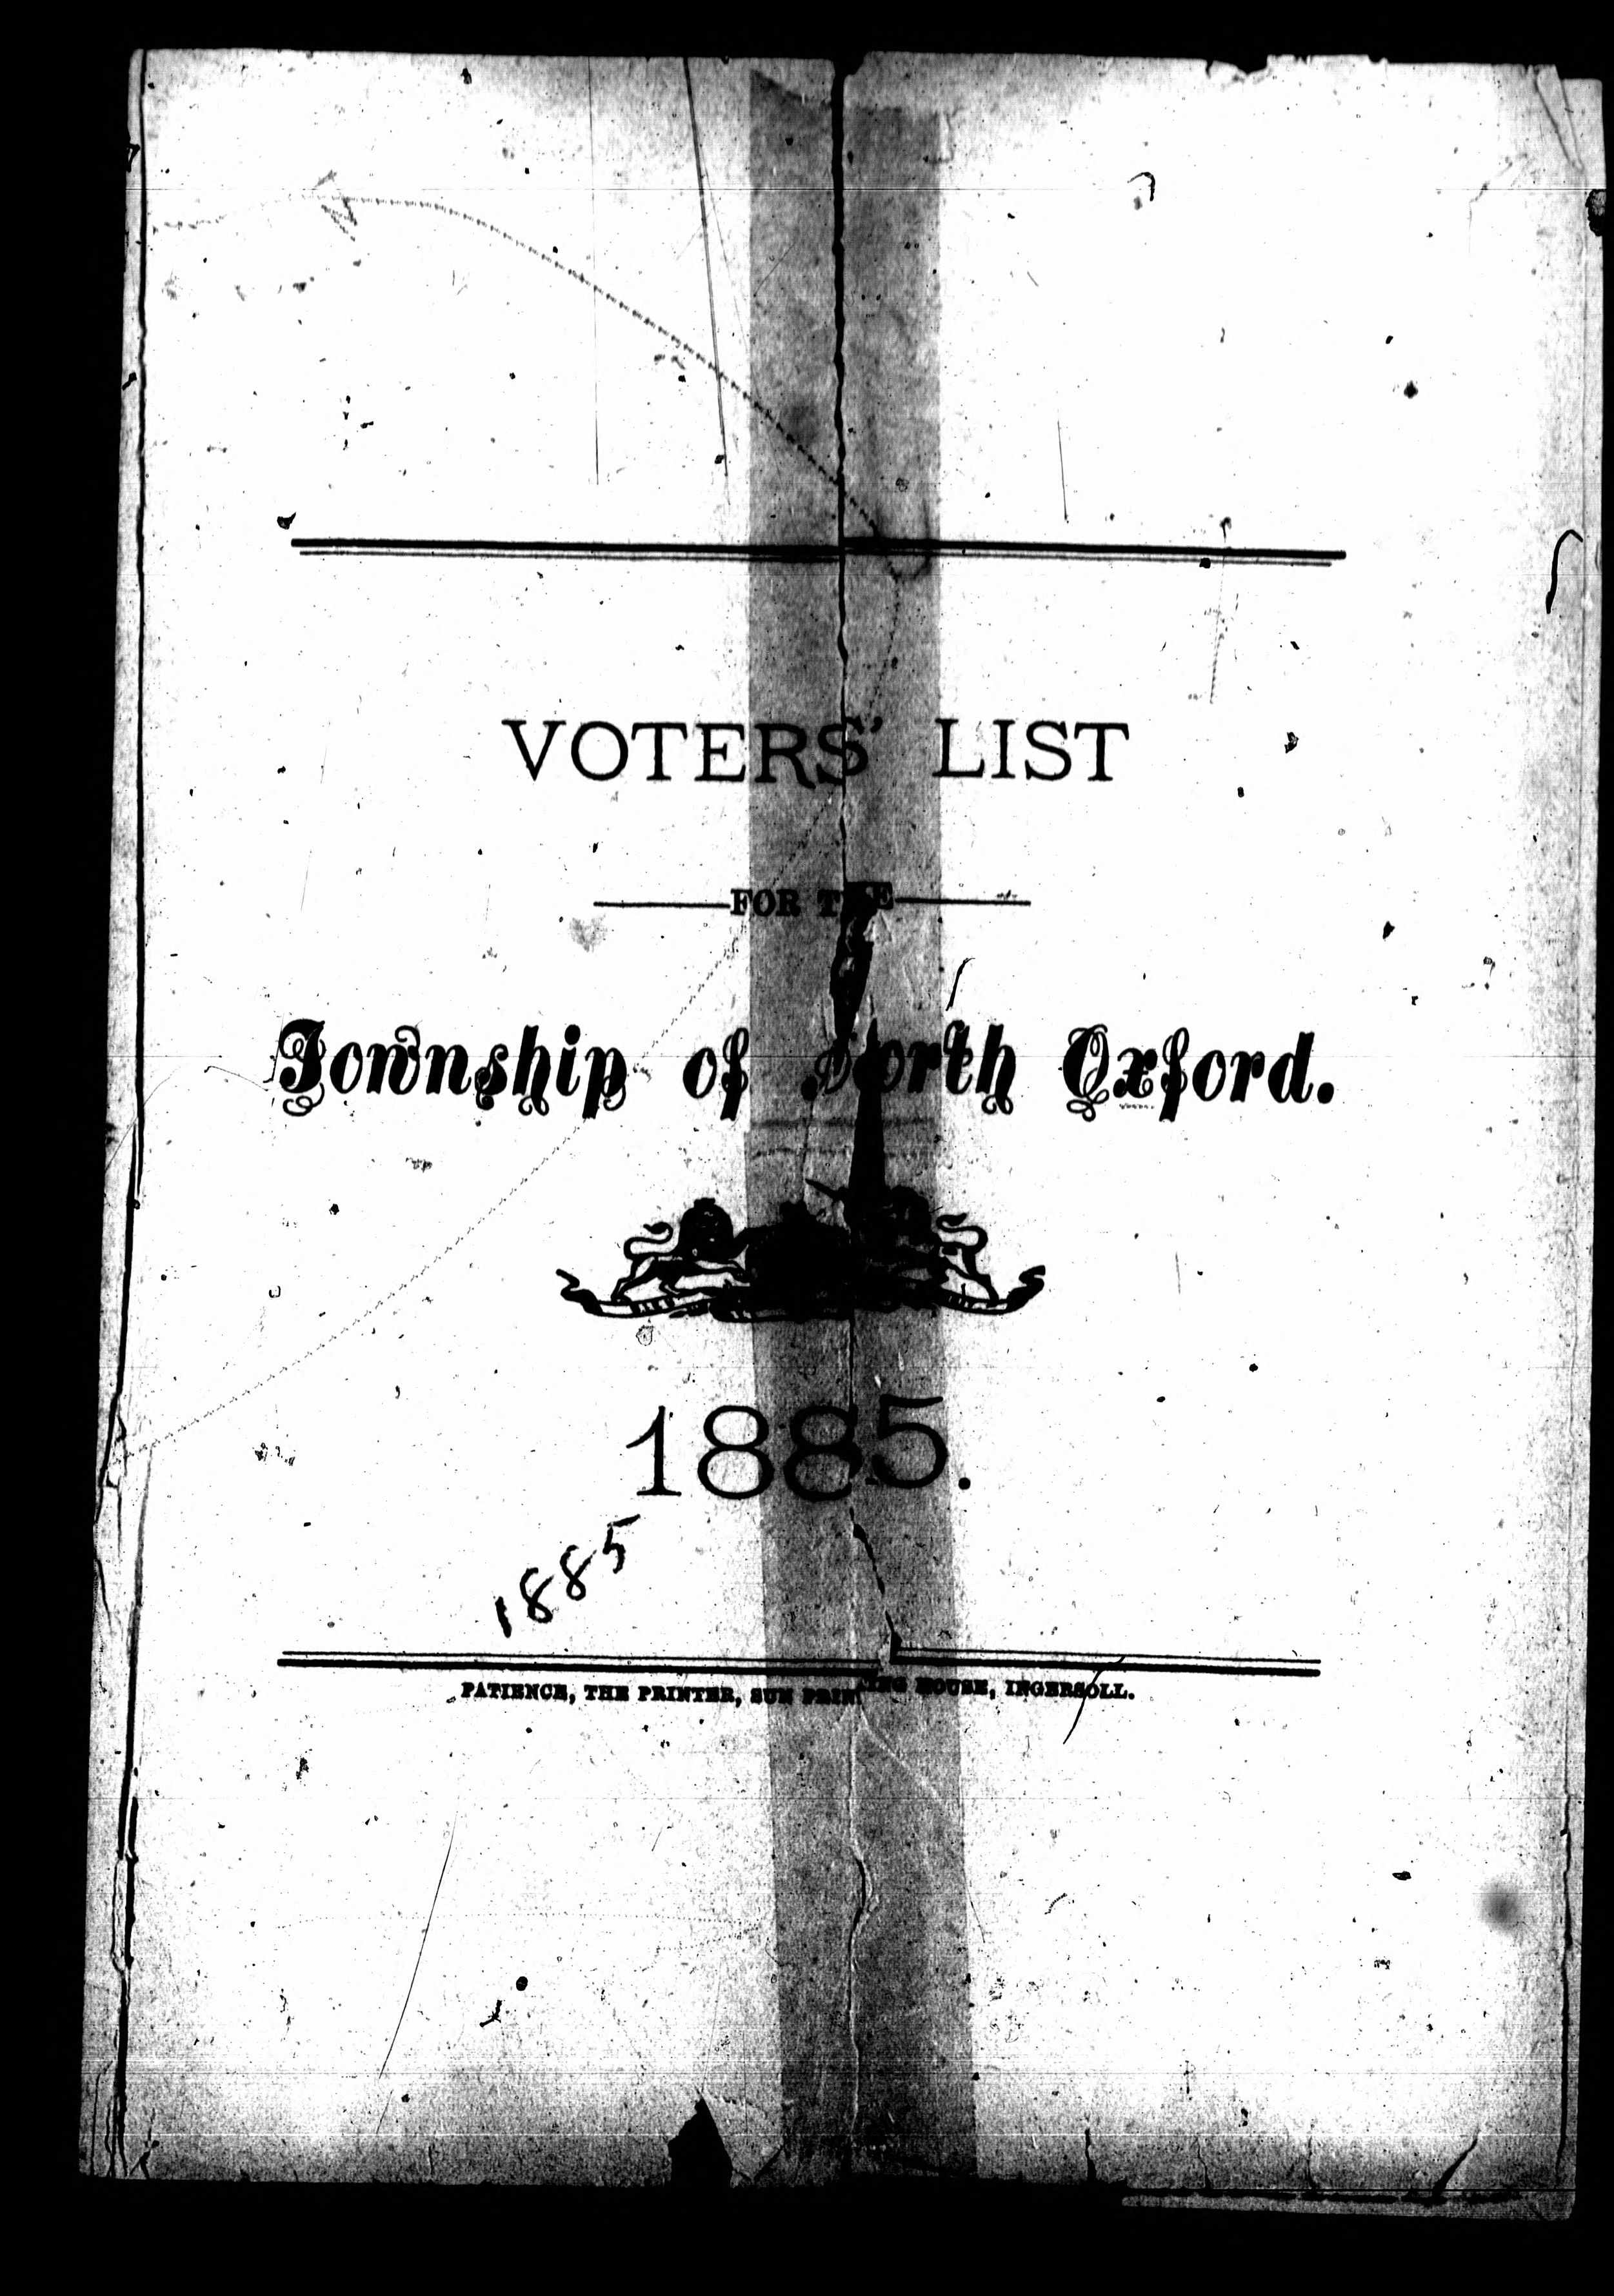 VOTERS' LIST
FOR THE
Township of North Oxford.
1885.
1885
PATIENCE, THE PRINTER, SUN PRINTING HOUSE, INGERSOLL.